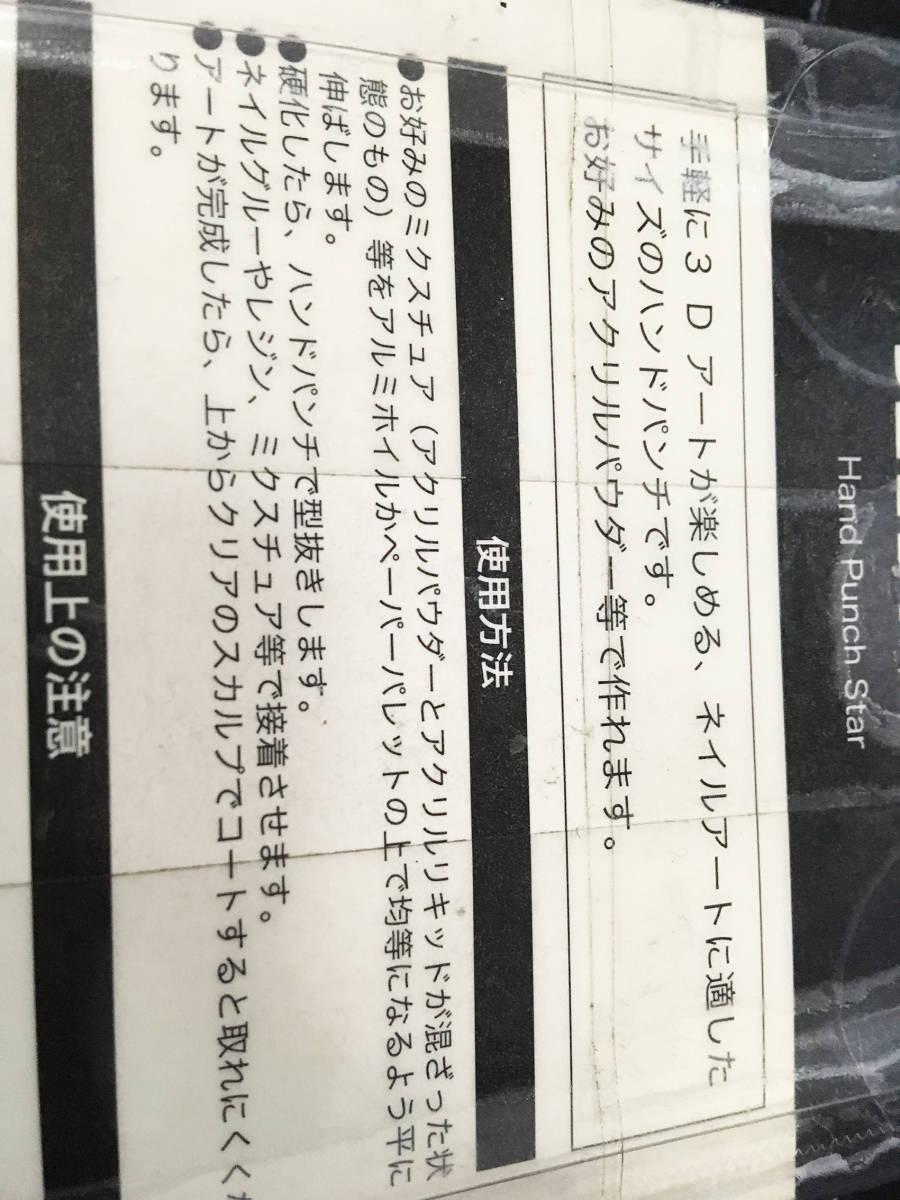 Hand Punch Star
手軽に3Dアートが楽しめる、ネイルアートに適した
サイズのハンドパンチです。
お好みのアクリルパウダー等で作れます。
使用方法
●お好みのミクスチュア（アクリルパウダーとアクリルリキッドが混ざった状
態のもの）等をアルミホイルかペーパーパレットの上で均等になるよう平に
伸ばします。
●硬化したら、ハンドパンチで型抜きします。
●ネイルグルーやレジン、ミクスチュア等で接着させます。
●アートが完成したら、上からクリアのスカルプでコートすると取れにくくな
ります。
使用上の注意